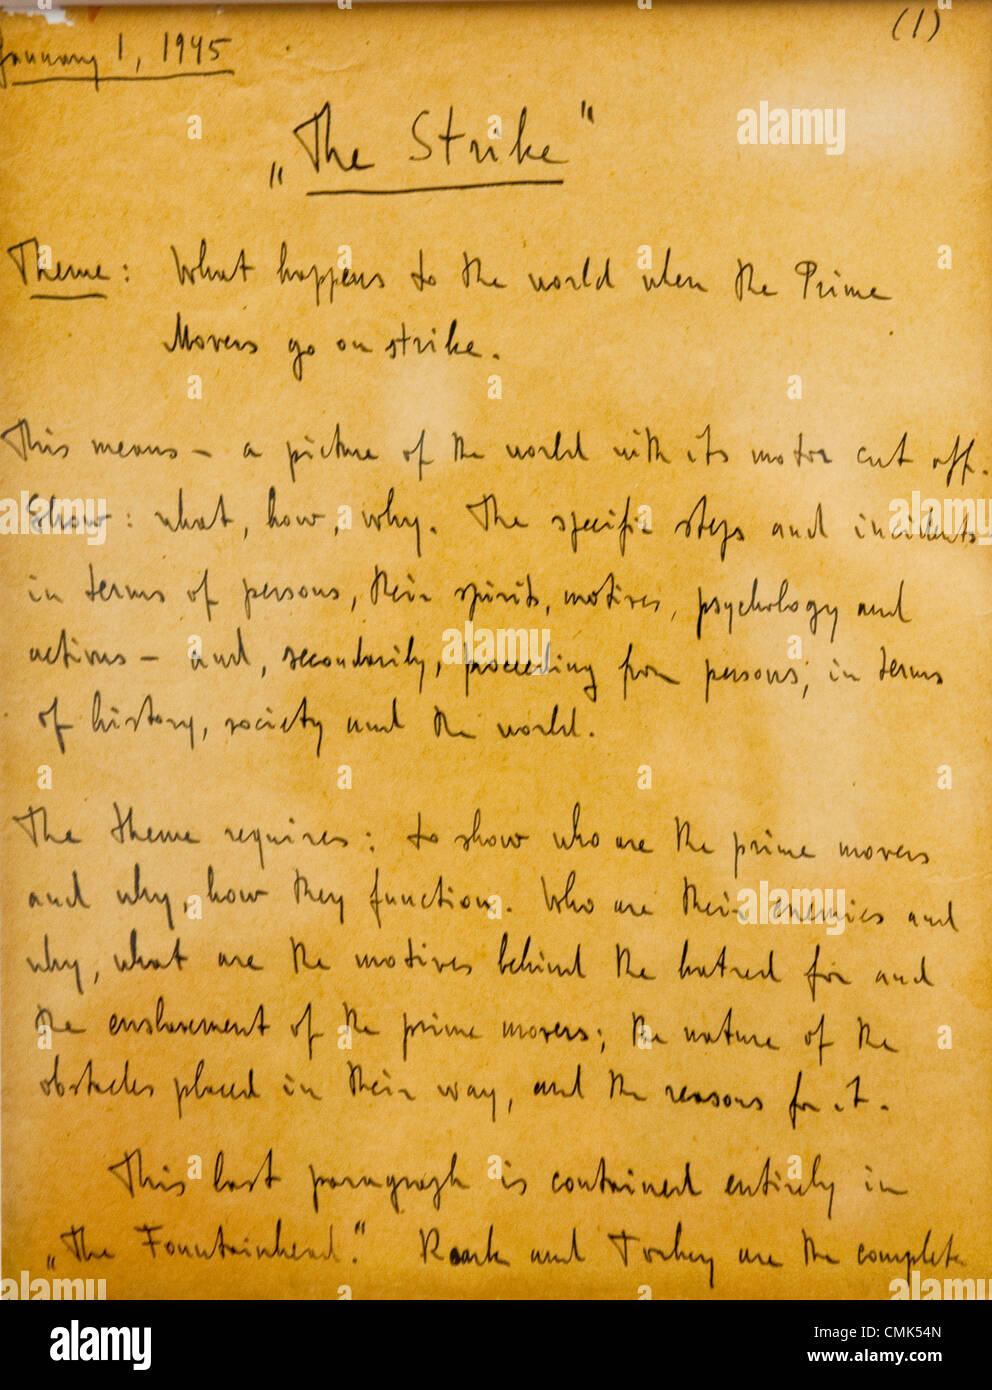 (1)
January 1, 1945
„The Strike"
Theme: What happens to the world when the Prime
Movers go on strike.
This means – a picture of the world with its motor cut off.
Show: what, how, why. The specific steps and incidents
in terms of persons, their spirits, motives, psychology and
actions – and, secondarily, proceeding from persons, in terms
of history, society and the world.
The theme requires: to show who are the prime movers
and why, how they function. Who are their enemies and
why, what are the motives behind the hatred for and
the enslavement of the prime movers; the nature of the
obstacles placed in their way, and the reasons for it.
This last paragraph is contained entirely in
„The Fountainhead." Roark and Toohey are the complete
alamy
a
Image ID: CMK54N
www.alamy.com